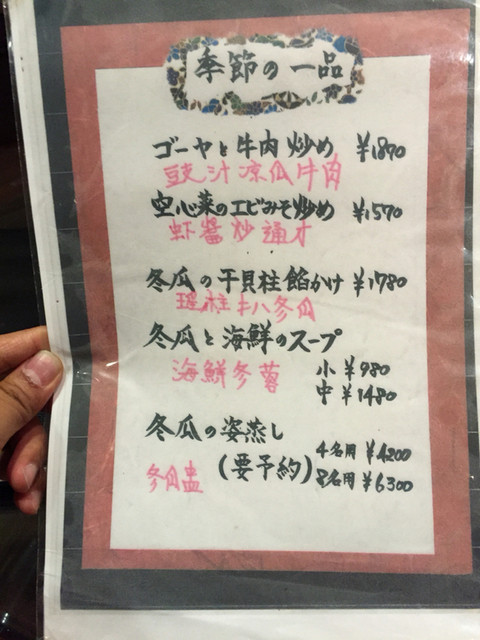 季節の一品
ゴーヤと牛肉炒め ¥1870
豉汁凉瓜牛肉
空心菜のエビみそ炒め ¥1570
虾醬炒通才
冬瓜の干貝柱餡かけ ¥1780
瑶柱扒冬瓜
冬瓜と海鮮のスープ
海鮮冬蓉
小 ¥980
中 ¥1480
冬瓜の姿蒸し
(要予約)
4名用 ¥4200
8名用 ¥6300
冬瓜盅